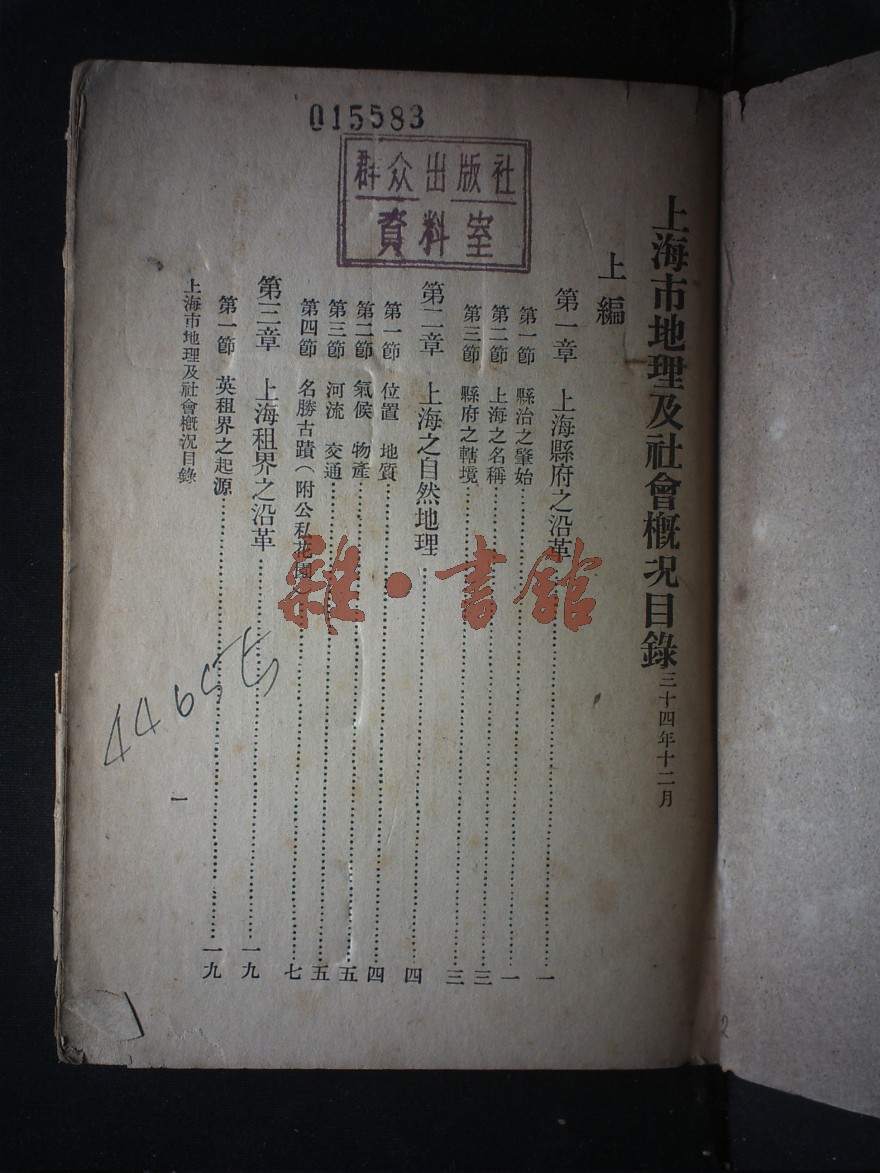 015583
群众出版社
資料室
上海市地理及社會概况目錄 三十四年十二月
上編
第一章 上海縣府之沿革……一
第一節 縣治之肇始……一
第二節 上海之名稱……三
第三節 縣府之轄境……三
第二章 上海之自然地理……四
第一節 位置 地質……四
第二節 氣候 物產……五
第三節 河流 交通……五
第四節 名勝古蹟(附公私花園)……七
第三章 上海租界之沿革……一九
第一節 英租界之起源……一九
上海市地理及社會概况目錄
一
雜·書館
2